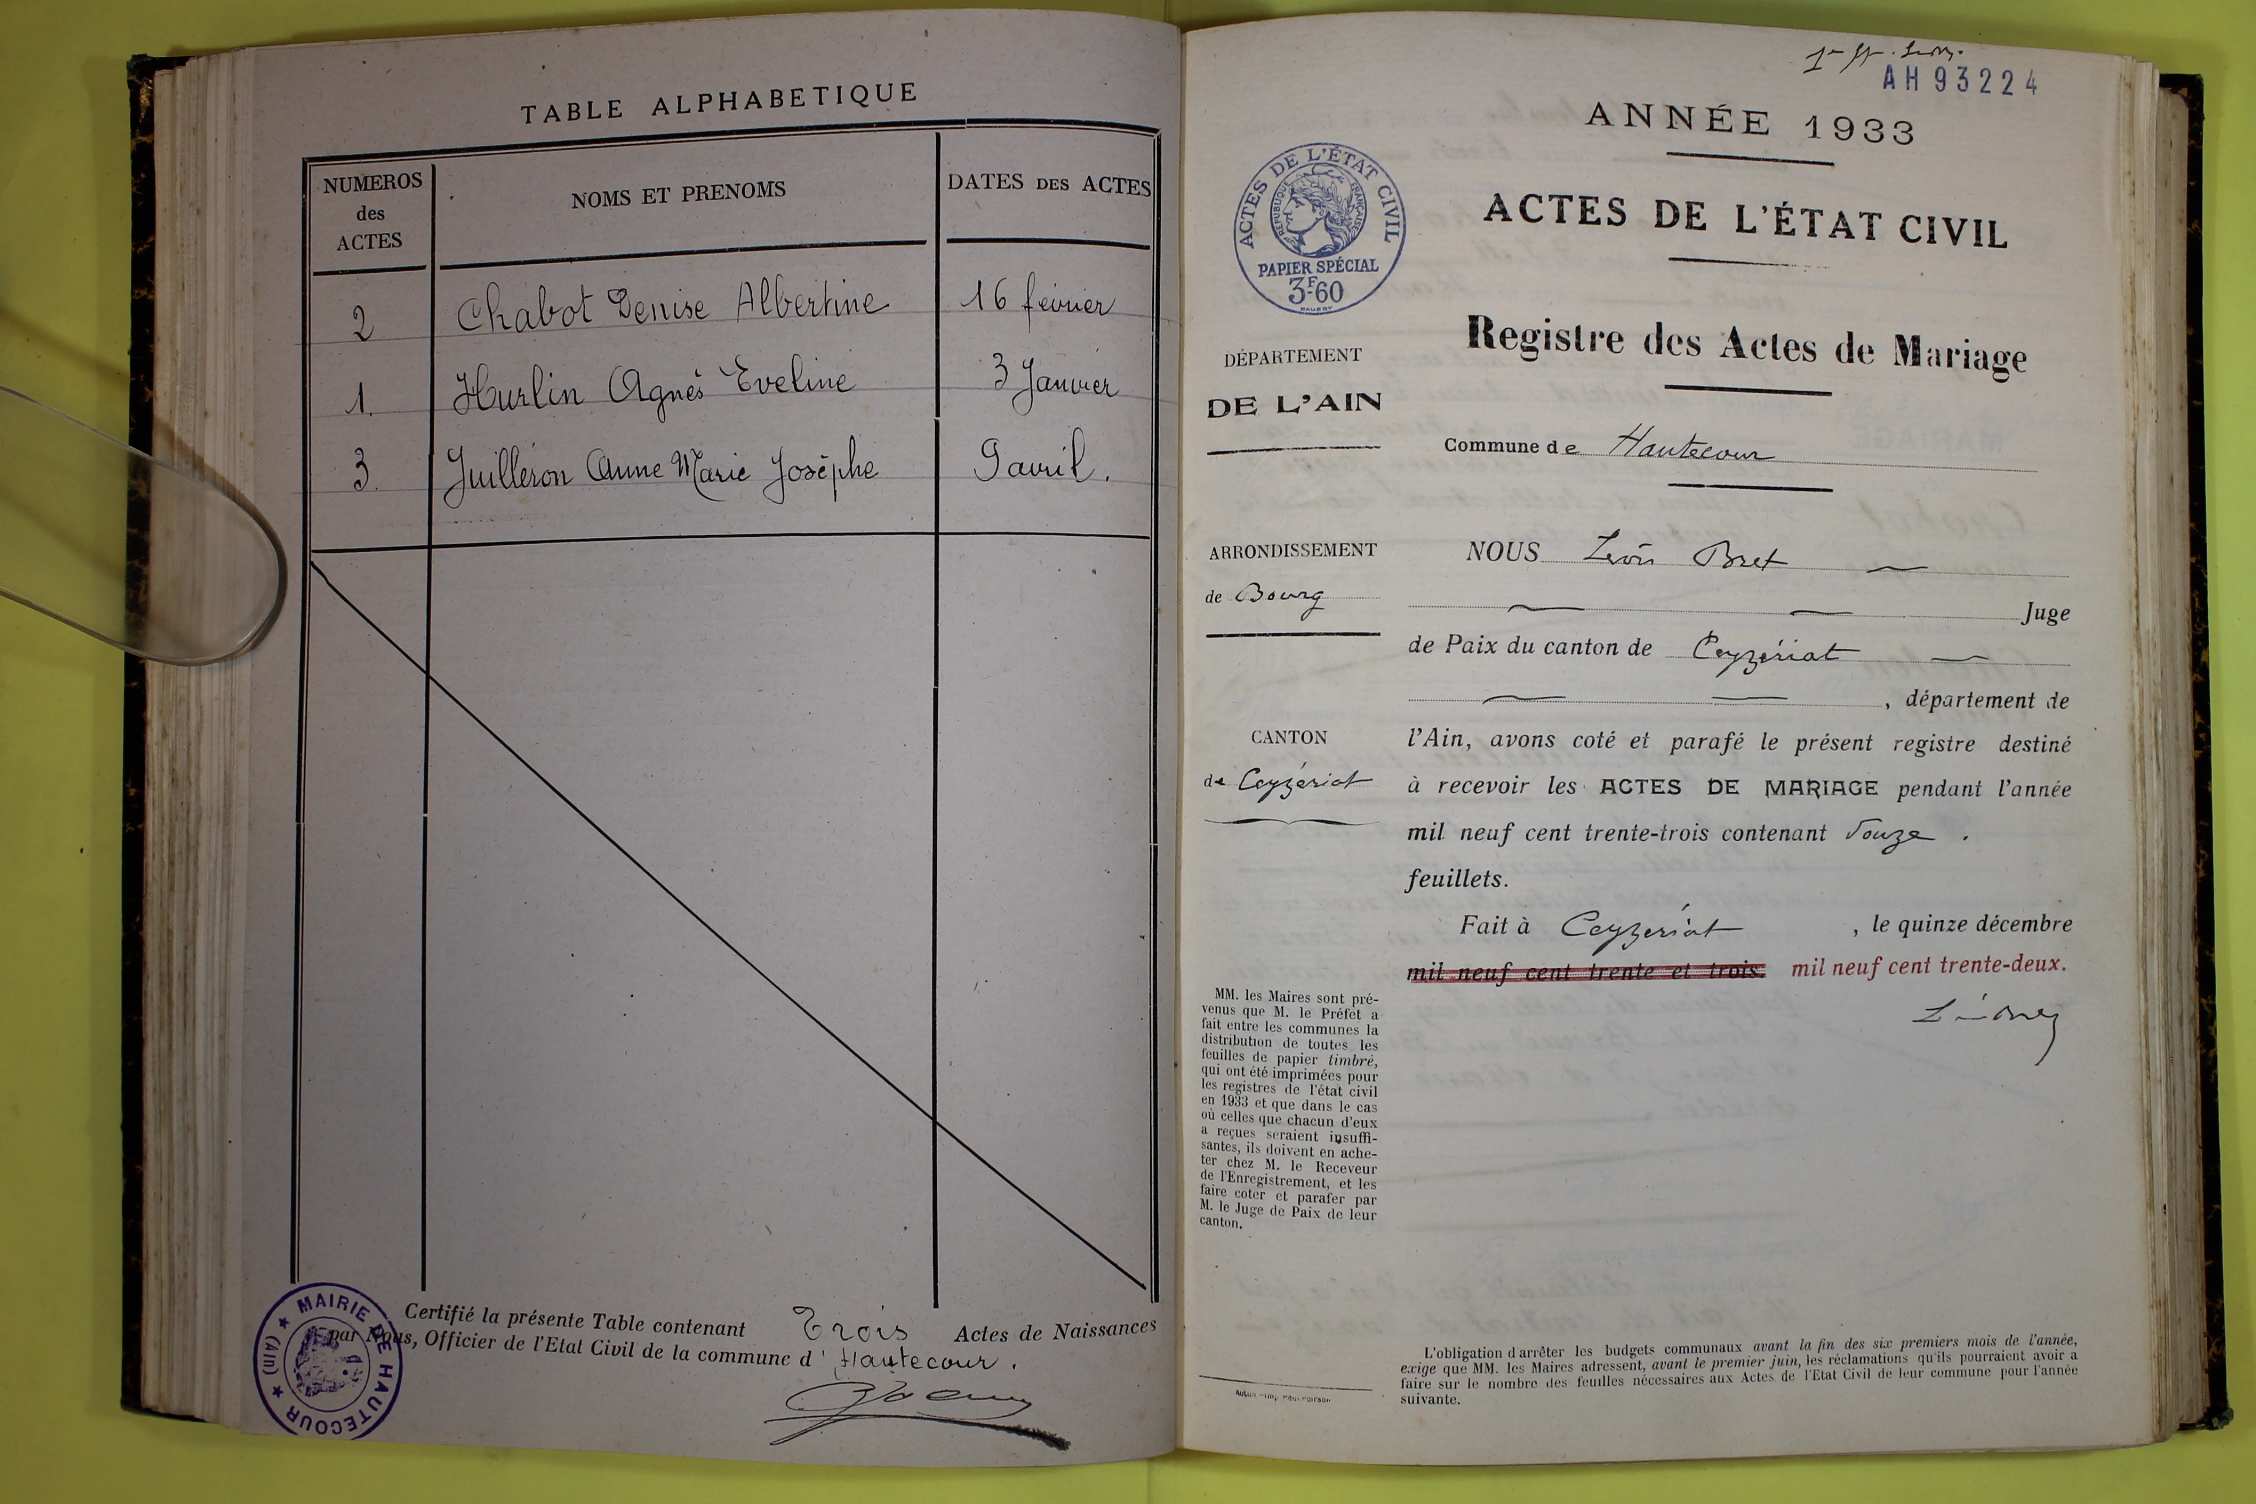 TABLE ALPHABETIQUE
NUMEROS
des
ACTES
NOMS ET PRENOMS
DATES DES ACTES
2 Chabot Denise Albertine 16 février
1. Hurlin Agnès Eveline 3 Janvier
3. Juilleron Anne Marie Josèphe 9 avril.
Certifié la présente Table contenant Trois Actes de Naissances
par Nous, Officier de l'Etat Civil de la commune d'Hautecour.
MAIRIE DE HAUTECOUR
(Ain)
AH 93224
ANNÉE 1933
ACTES DE L'ÉTAT CIVIL
RÉPUBLIQUE FRANÇAISE
PAPIER SPÉCIAL
3F60
ACTES DE L'ÉTAT CIVIL
Registre des Actes de Mariage
Commune de Hautecour
DÉPARTEMENT
DE L'AIN
ARRONDISSEMENT
de Bourg
CANTON
de Ceyzériat
MM. les Maires sont pré-
venus que M. le Préfet a
fait entre les communes la
distribution de toutes les
feuilles de papier timbré,
qui ont été imprimées pour
les registres de l'état civil
en 1933 et que dans le cas
où celles que chacun d'eux
a reçues seraient insuffi-
santes, ils doivent en ache-
ter chez M. le Receveur
de l'Enregistrement, et les
faire coter et parafer par
M. le Juge de Paix de leur
canton.
NOUS Léon Bret
Juge
de Paix du canton de Ceyzériat
, département de
l'Ain, avons coté et parafé le présent registre destiné
à recevoir les ACTES DE MARIAGE pendant l'année
mil neuf cent trente-trois contenant douze.
feuillets.
Fait à Ceyzériat , le quinze décembre
mil neuf cent trente et trois. mil neuf cent trente-deux.
L'obligation d'arrêter les budgets communaux avant la fin des six premiers mois de l'année,
exige que MM. les Maires adressent, avant le premier juin, les réclamations qu'ils pourraient avoir a
faire sur le nombre des feuilles nécessaires aux Actes de l'Etat Civil de leur commune pour l'année
suivante.